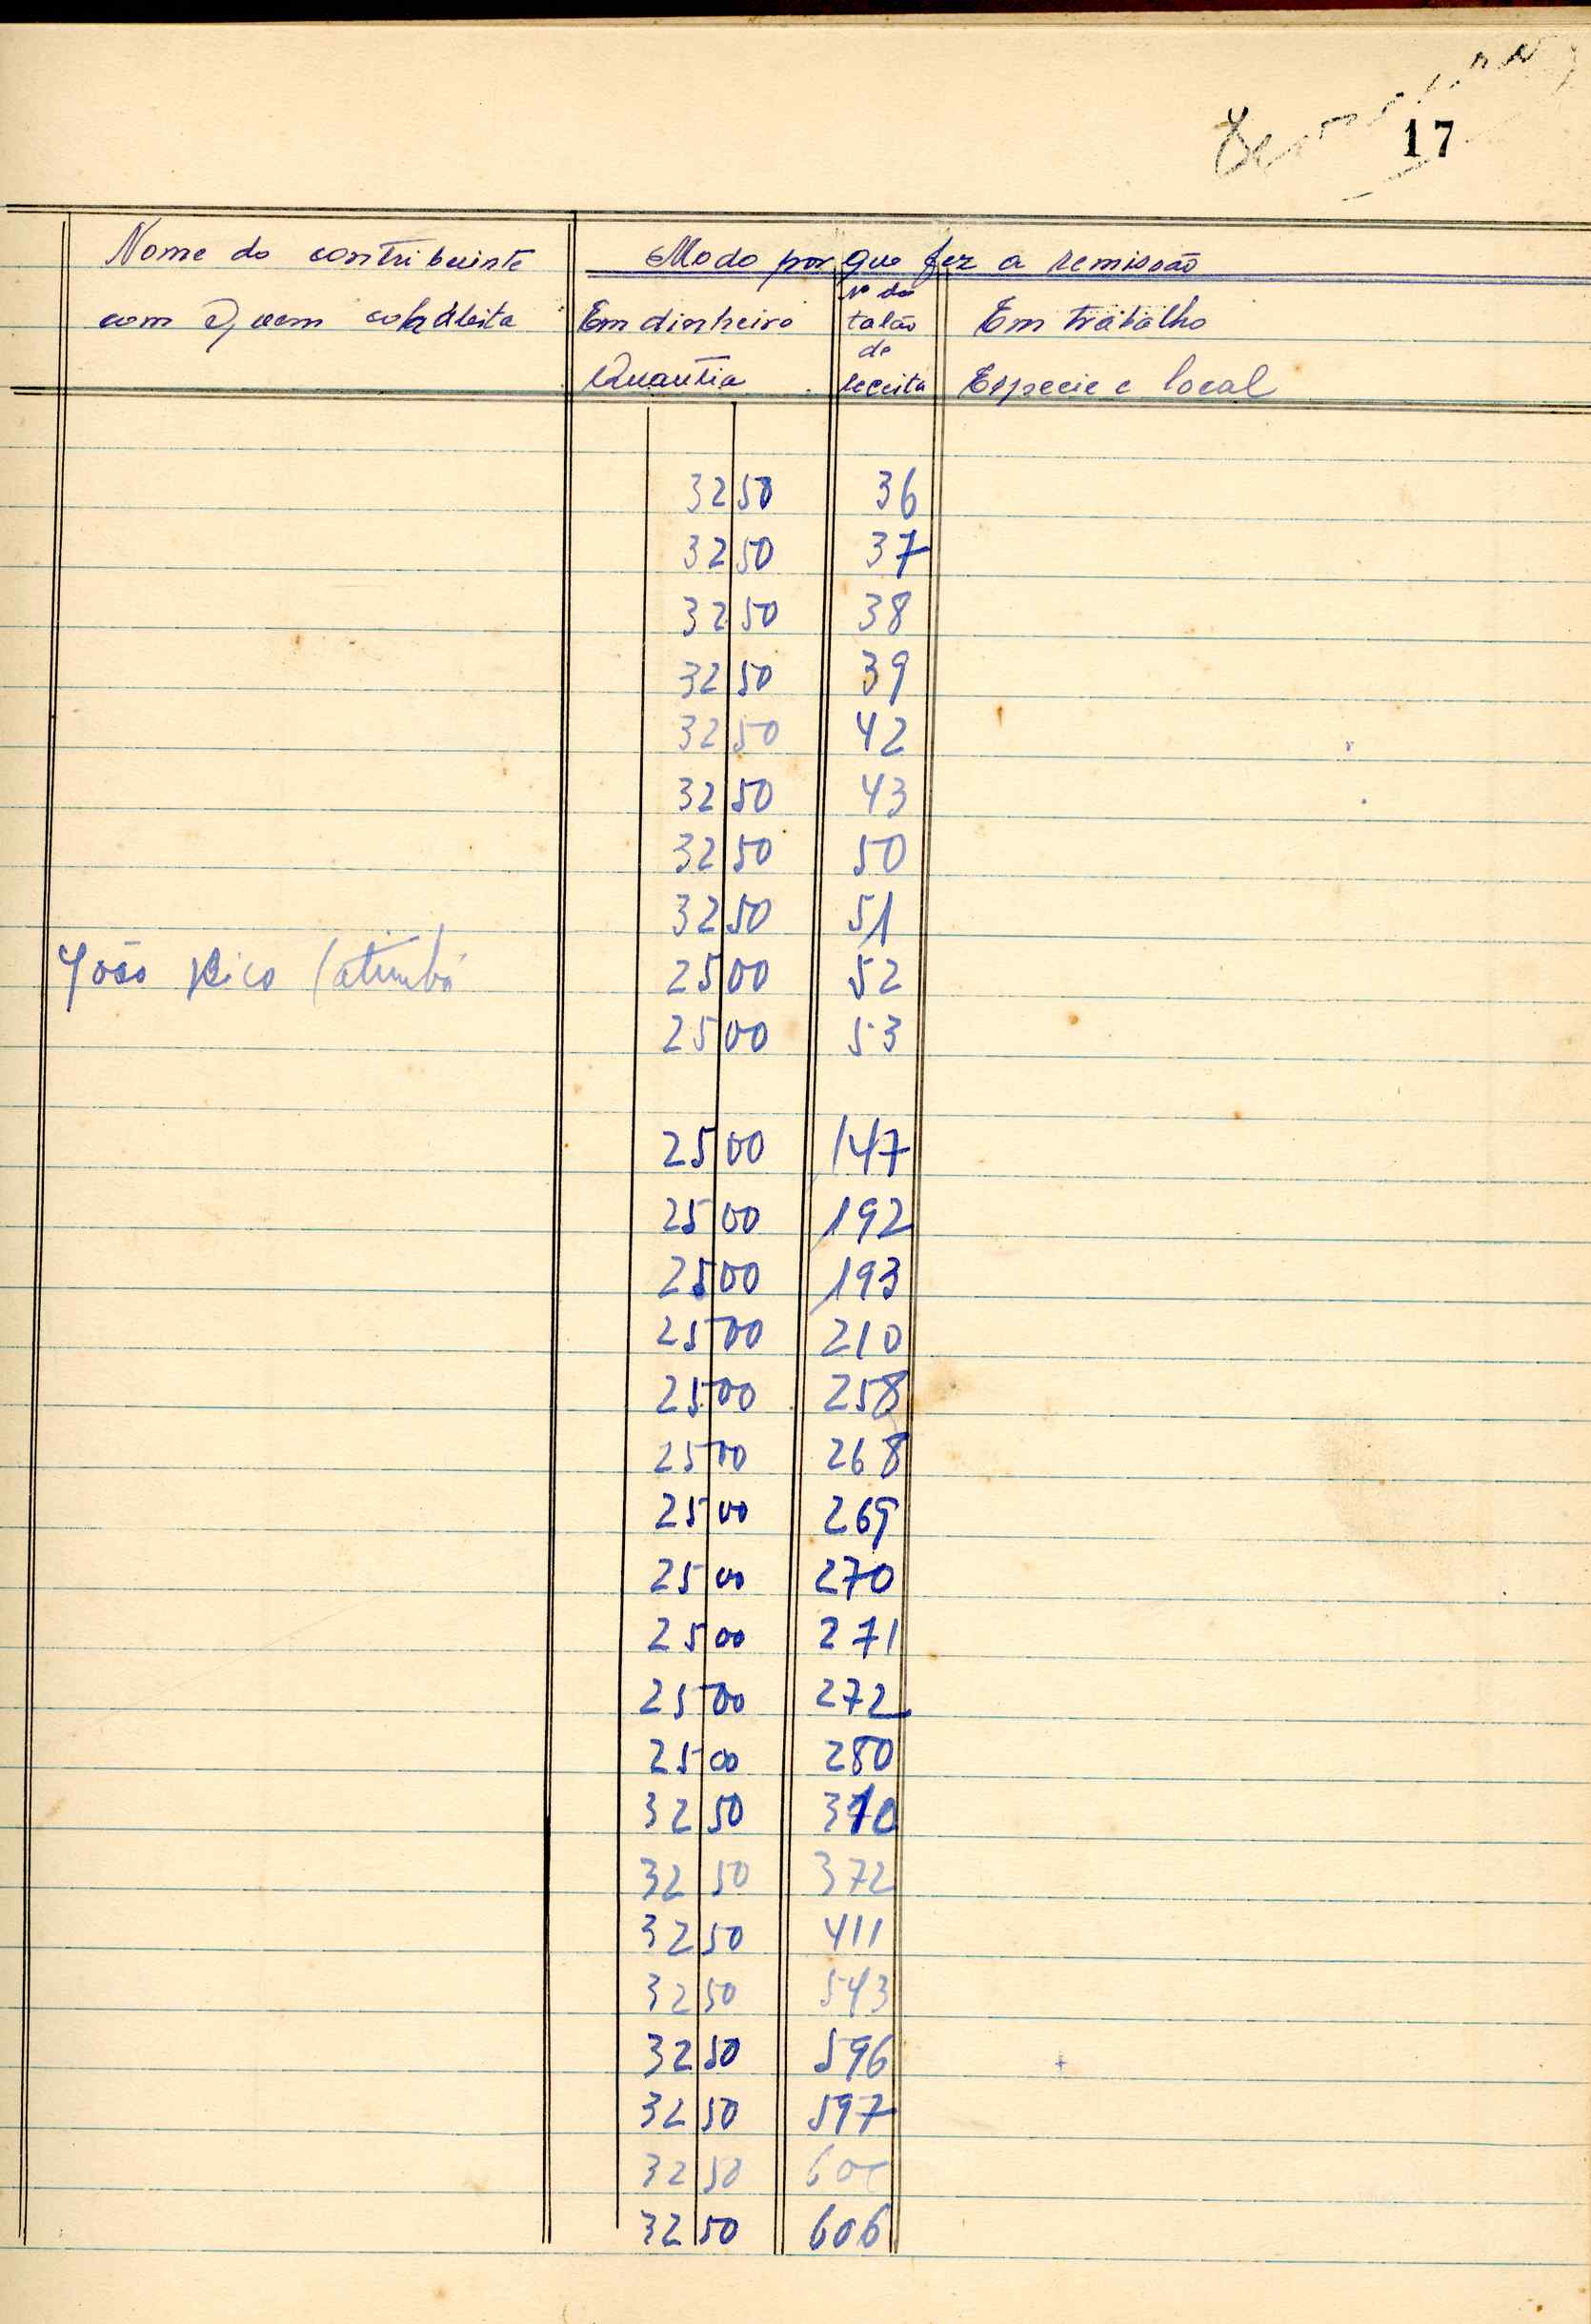 17
Nome do contribuinte Modo por que fez a remissão
com quem cohabita Em dinheiro Nº do talão de receita Em trabalho
Quantia Especie e local
32 50 36
32 50 37
32 50 38
32 50 39
32 50 42
32 50 43
32 50 50
32 50 51
João Rico 25 00 52
25 00 53
25 00 147
25 00 192
25 00 193
25 00 210
25 00 258
25 00 268
25 00 269
25 00 270
25 00 271
25 00 272
25 00 280
32 50 310
32 50 372
32 50 411
32 50 543
32 50 596
32 50 597
32 50
32 50 606